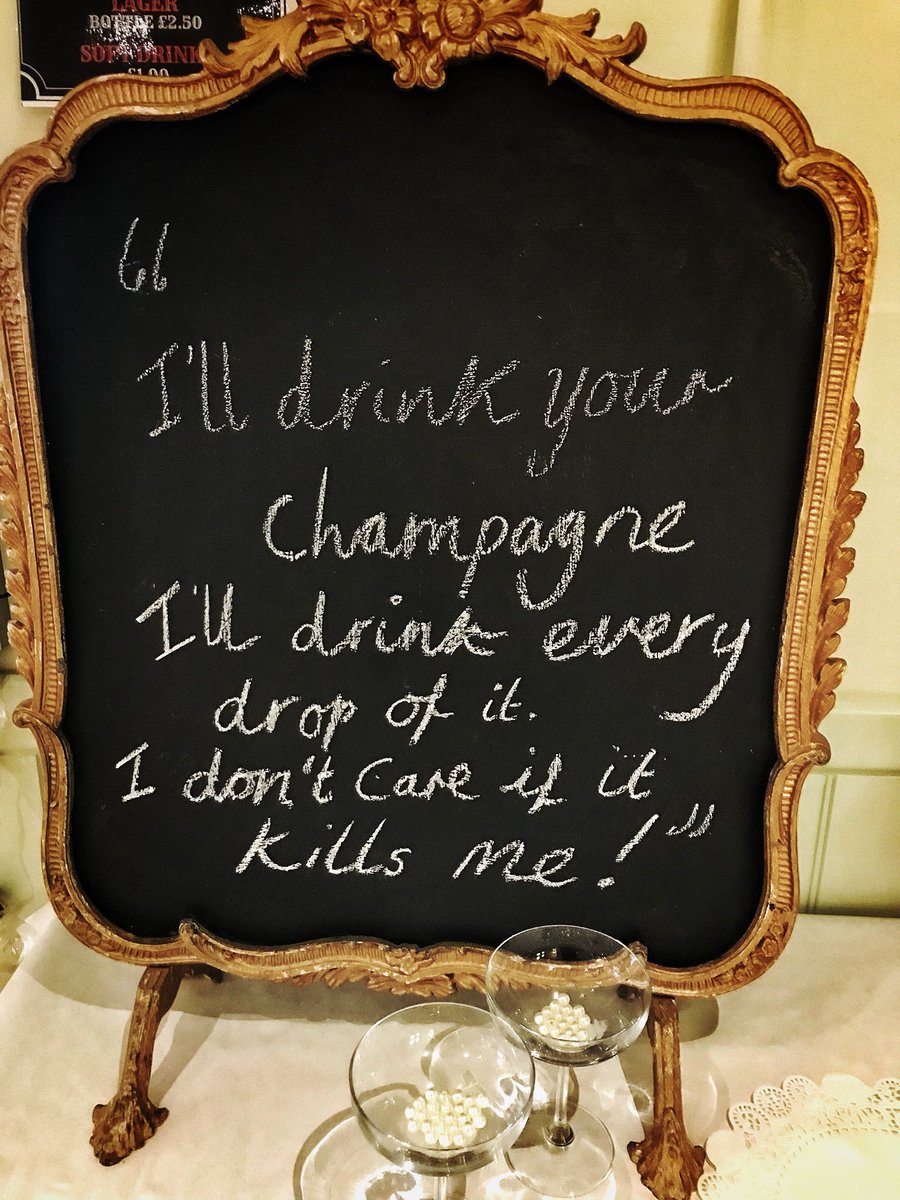 LAGER
BOTTLE £2.50
SOFT DRINK
£1.00
“
I'll drink your
Champagne
I'll drink every
drop of it.
I don't care if it
kills me!”